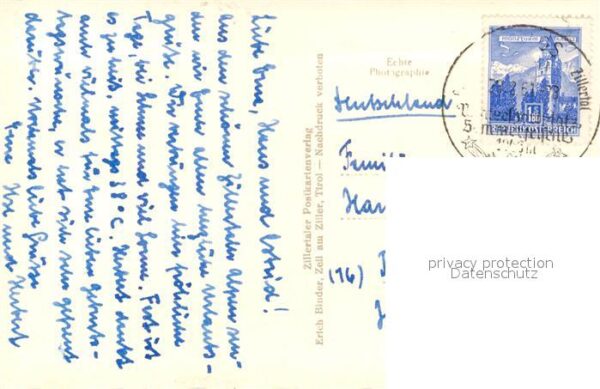 Liebe Erna, Hans und Astrid!
Aus dem schönen Zillertaler Alpen sen-
den wir Euch allen herzliche Urlaubs-
grüße. Wir verbringen hier fröhliche
Tage, bei Ruhe und viel Sonne. Fast ist
es zu heiß, mittags 38°C. Herbert dankt
auch vielmals für Eure lieben Geburts-
tagswünsche, er hat sich sehr gefreut
darüber. Nochmals liebe Grüße
Eure Ilse und Herbert
Zillertaler Postkartenverlag
Erich Binder, Zell am Ziller, Tirol — Nachdruck verboten
Echte
Photographie
Deutschland
Famil
Han
(16)
Zillertal
REPUBLIK ÖSTERREICH
privacy protection
Datenschutz